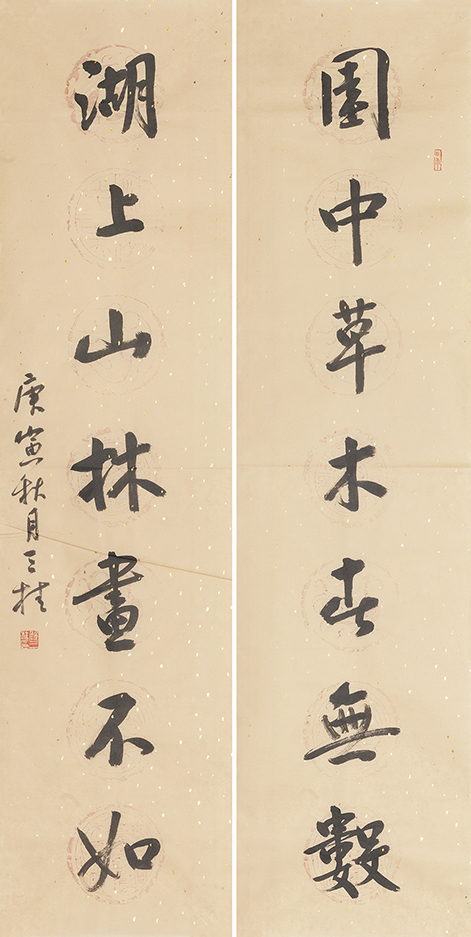 園中草木春無數
湖上山林畫不如
庚寅秋月三桂